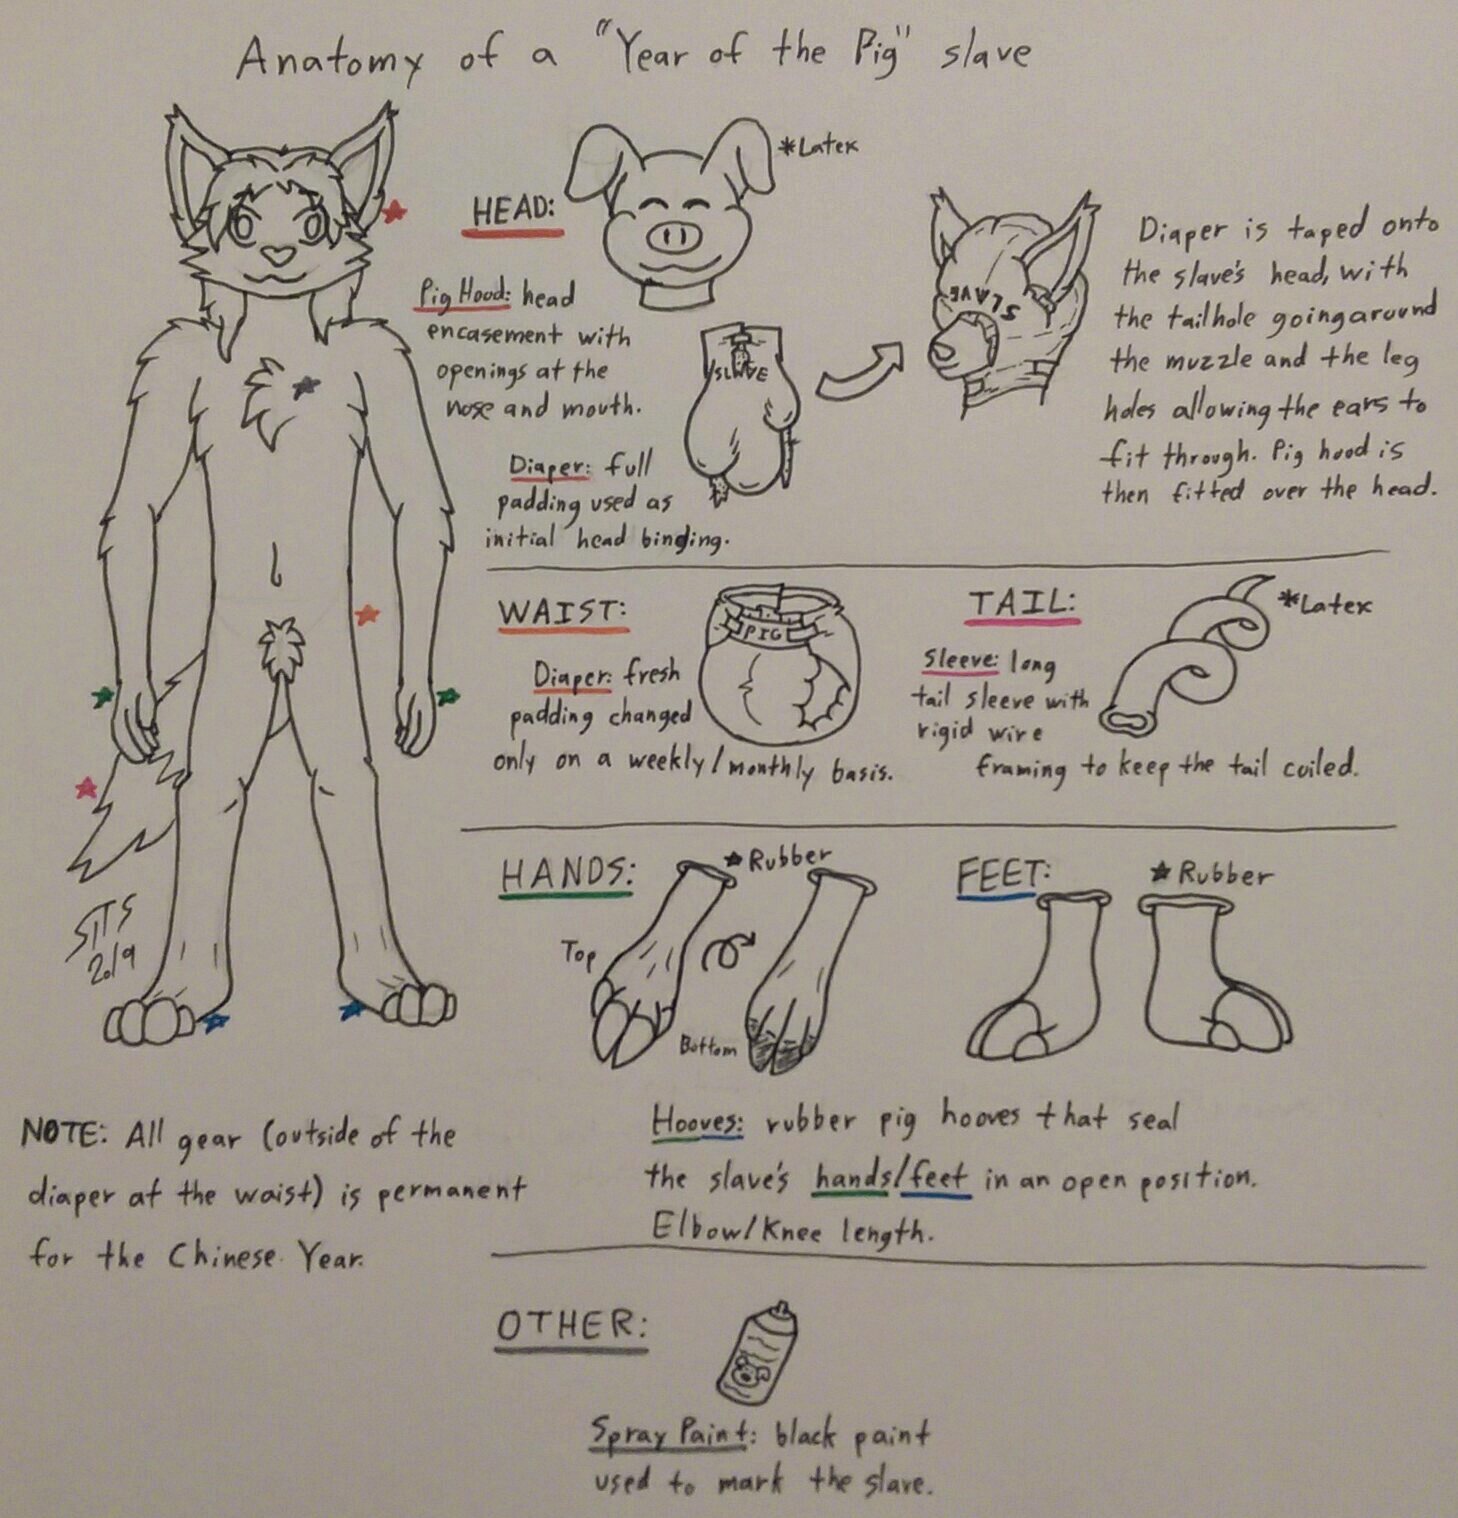 Anatomy of a "Year of the Pig" slave
HEAD:
*Latex
Pig Hood: head
encasement with
openings at the
nose and mouth.
SLAVE
SLAVE
Diaper: full
padding used as
initial head binding.
Diaper is taped onto
the slave's head, with
the tailhole going around
the muzzle and the leg
holes allowing the ears to
fit through. Pig hood is
then fitted over the head.
WAIST:
PIG
Diaper: fresh
padding changed
only on a weekly/monthly basis.
TAIL:
*Latex
Sleeve: long
tail sleeve with
rigid wire
framing to keep the tail coiled.
HANDS:
*Rubber
Top
Bottom
FEET:
*Rubber
Hooves: rubber pig hooves that seal
the slave's hands/feet in an open position.
Elbow/Knee length.
STS
2019
NOTE: All gear (outside of the
diaper at the waist) is permanent
for the Chinese Year.
OTHER:
Spray Paint: black paint
used to mark the slave.